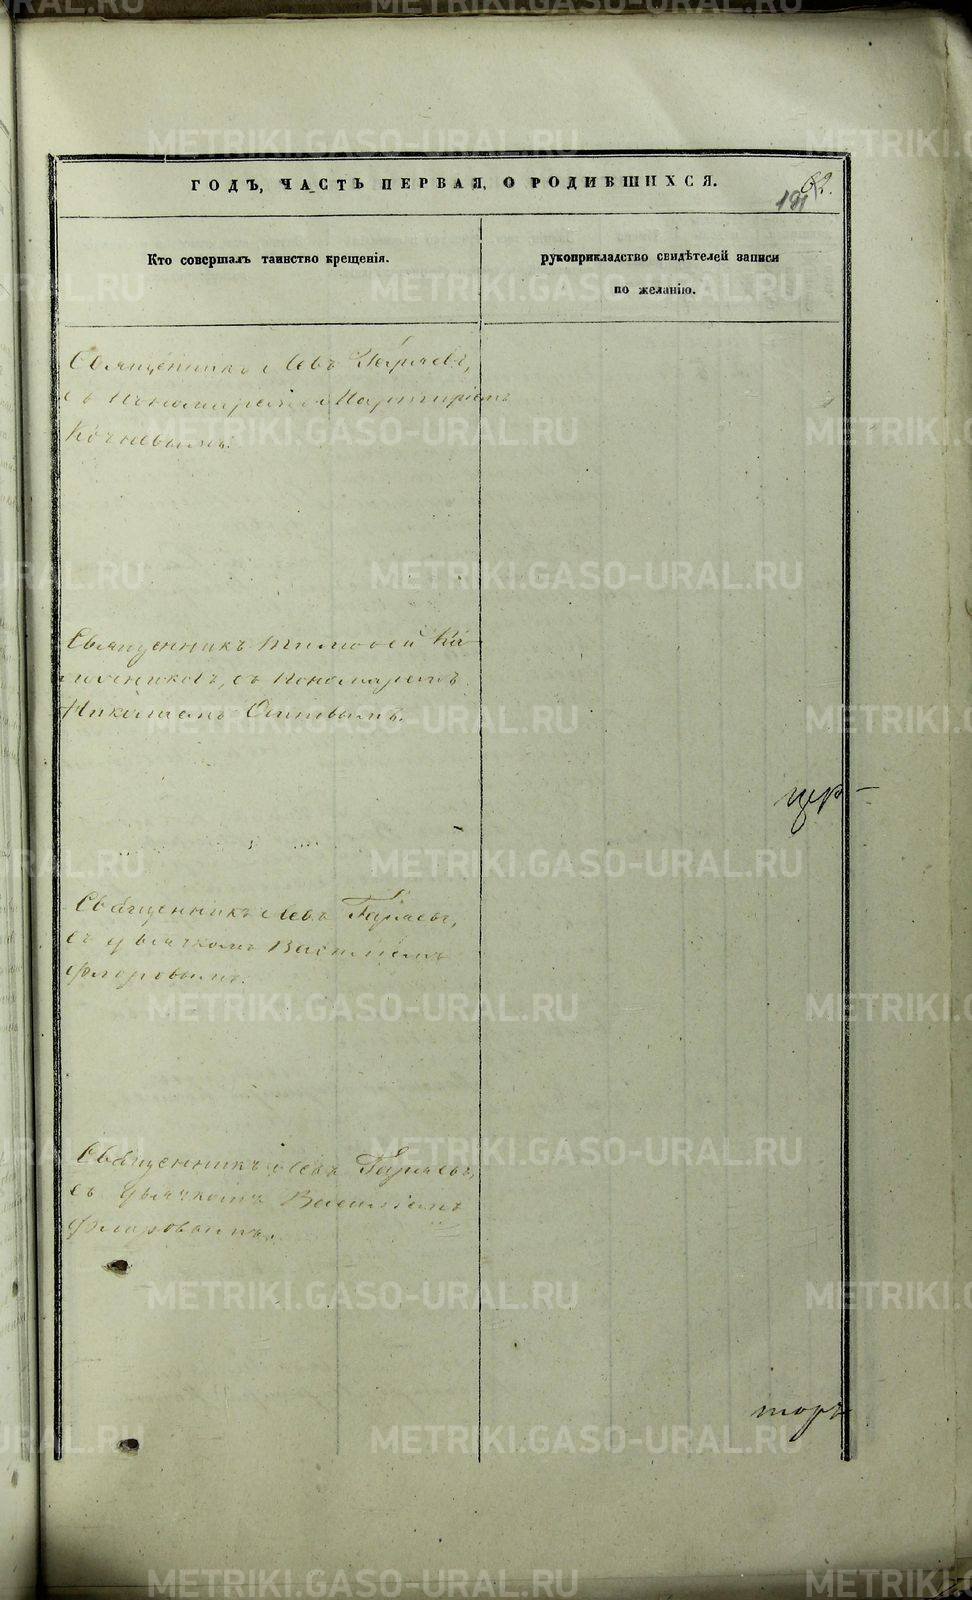 ГОДЪ, ЧАСТЬ ПЕРВАЯ, О РОДИВШИХСЯ.
62.
191
Кто совершалъ таинство крещенія.
рукоприкладство свидѣтелей записи
по желанію.
Священникъ Левъ Гаряевъ,
съ
Кочневымъ.
Священникъ Тимофей Ка
съ Пономаремъ
Николаемъ
Священникъ Левъ Гаряевъ,
съ дьячкомъ Василіемъ
Флоровымъ.
Священникъ Левъ Гаряевъ,
съ дьячкомъ Василіемъ
Флоровымъ.
METRIKI.GASO-URAL.RU